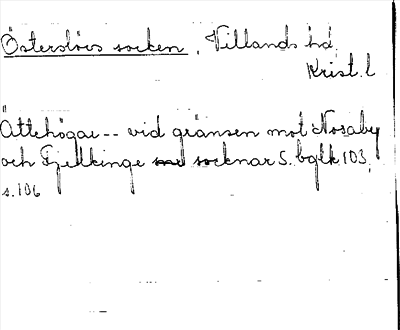 Österslövs socken, Villands hd,
Krist. l
Ättehögar -- vid gränsen mot Nosaby
och Fjellkinge socknar S. bglk 103,
s. 106